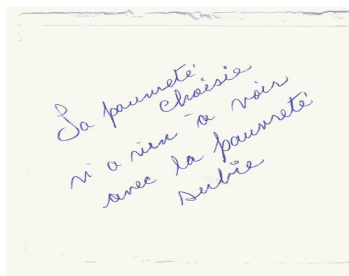 La pauvreté
choisie
n'a rien à voir
avec la pauvreté
subie